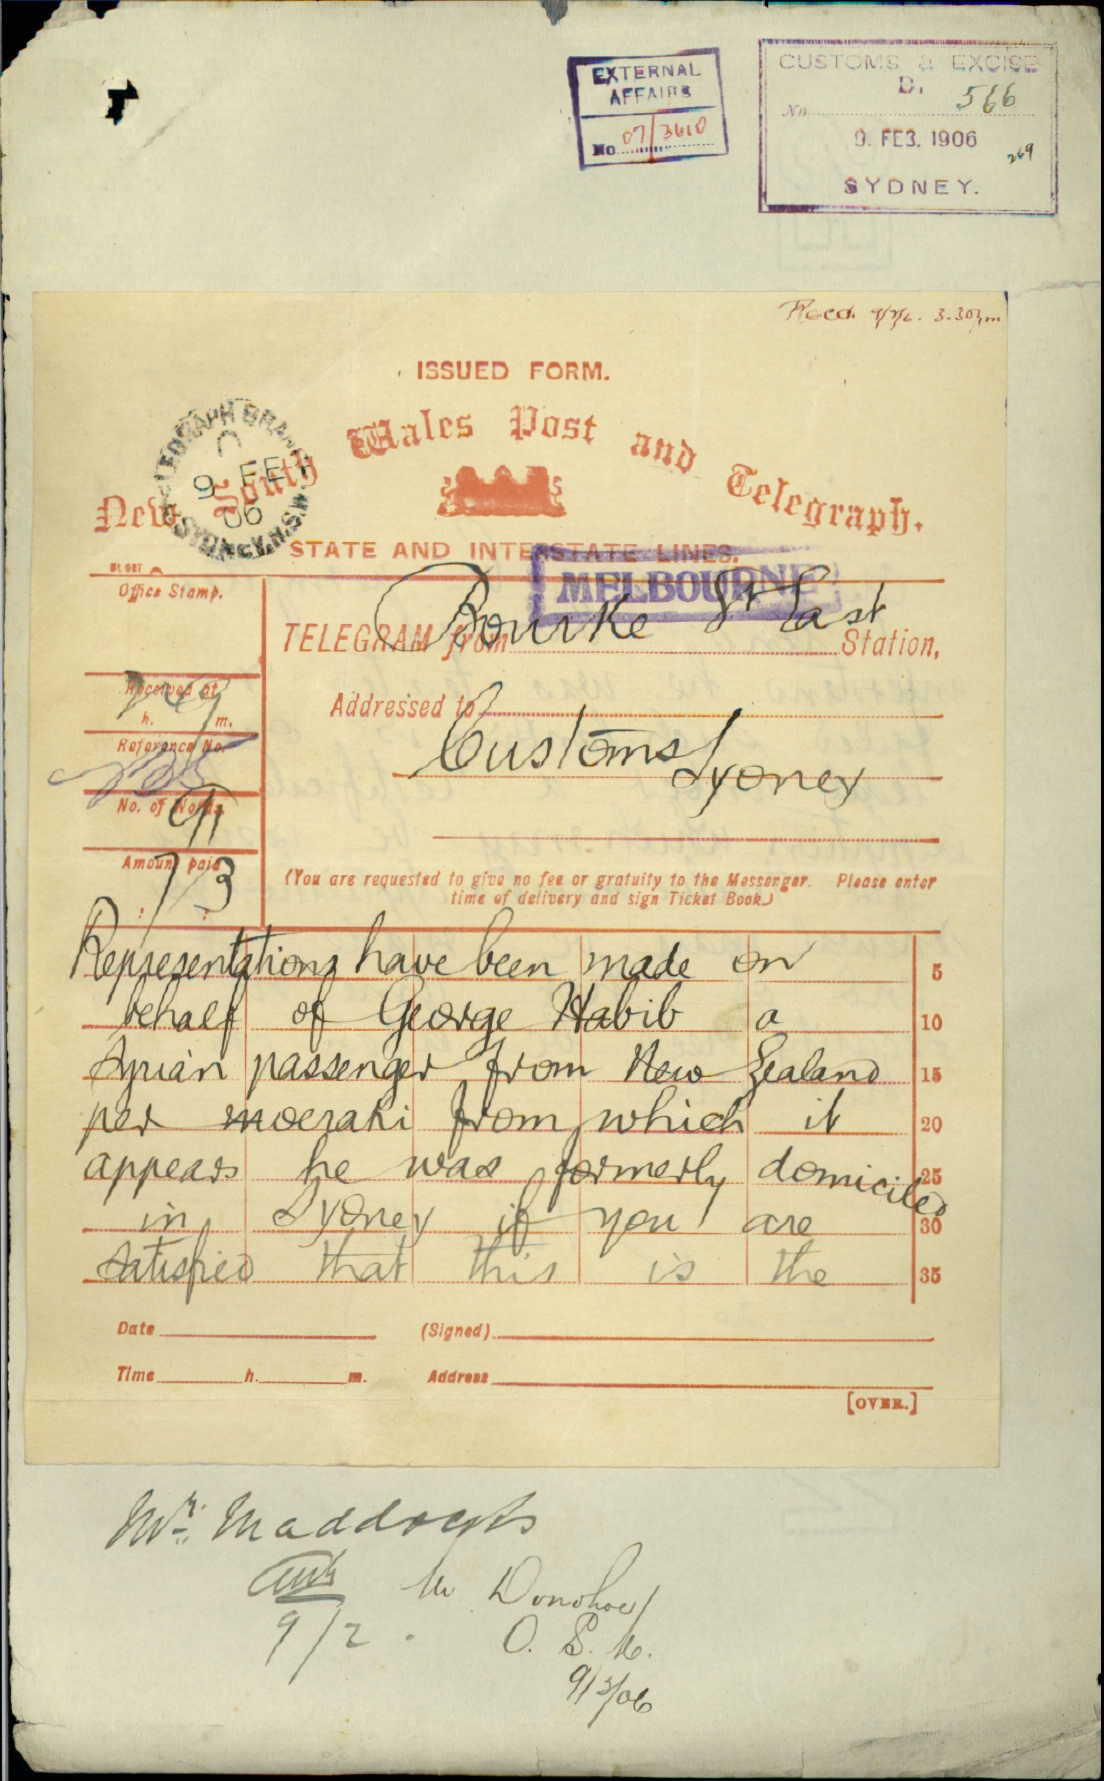 EXTERNAL
AFFAIRS
No. 07/3610
CUSTOMS & EXCISE
D.
No. 566
9. FEB. 1906
269
SYDNEY.
Recd. 9/2/6. 3.30pm
ISSUED FORM.
New South Wales Post and Telegraph.
TELEGRAPH BRANCH
9 FE
06
SYDNEY. N.S.W
STATE AND INTERSTATE LINES.
MELBOURNE
Office Stamp.
TELEGRAM from Bourke St East Station,
Received at
h. m.
Addressed to
Customs
Sydney
Reference No.
No. of Words
Amount paid
1/3
(You are requested to give no fee or gratuity to the Messenger. Please enter
time of delivery and sign Ticket Book.)
Representations have been made on 5
behalf of George Habib a 10
Syrian passenger from New Zealand 15
per moeraki from which it 20
appears he was formerly domiciled 25
in Sydney if you are 30
satisfied that this is the 35
Date (Signed)
Time h. m. Address
[OVER.]
Mr. Maddocks
9/2.
Mr Donohoe
9/2/06